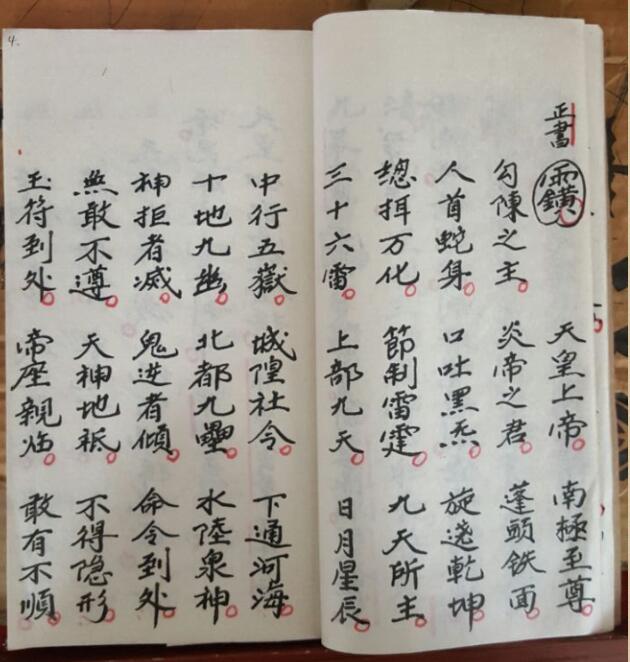 正書
天皇上帝。南極至尊。
勾陳之主。炎帝之君。蓬頭鉄面。
人首蛇身。口吐黑炁。旋遶乾坤。
總万化。節制雷霆。九天所主。
三十六雷。上部九天。日月星辰。
4.
中行五嶽。城隍社令。下通河海。
十地九幽。北都九壘。水陸泉神。
神拒者滅。鬼逆者傾。命令到处。
無敢不遵。天神地祇。不得隐形。
玉符到处。帝座親临。敢有不順。